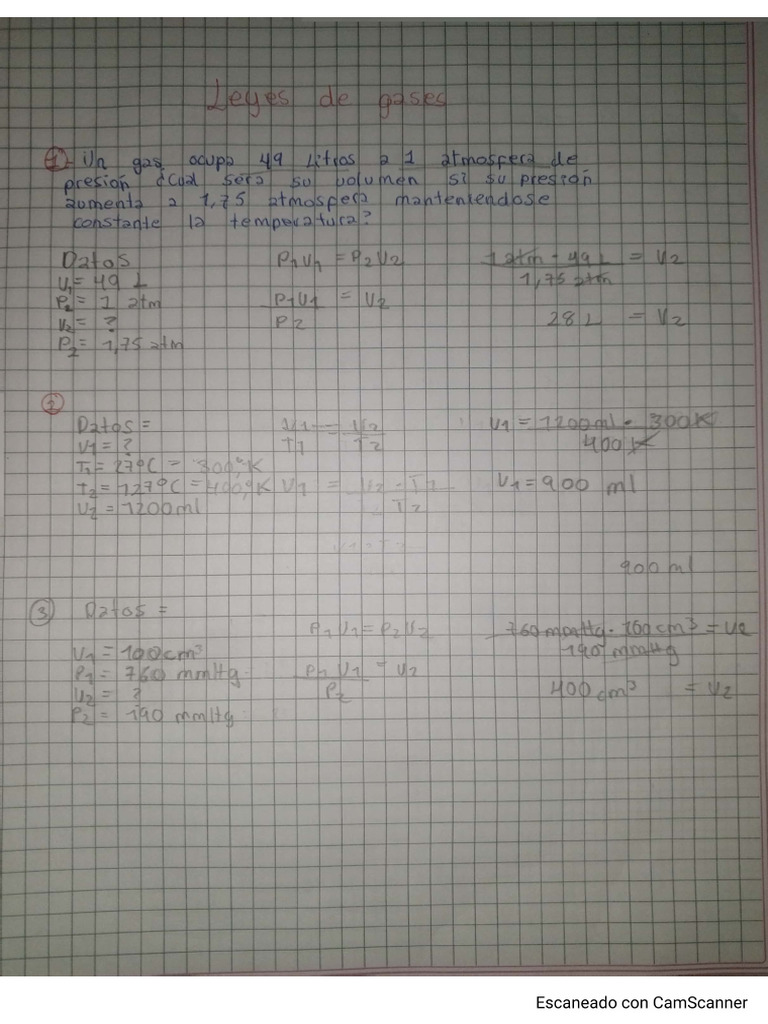 Leyes de gases
1- Un gas ocupa 49 Litros a 1 atmosfera de
presión ¿Cual sera su volumen si su presión
aumenta a 1,75 atmosfera manteniendose
constante la temperatura?
Datos
V1 = 49 L
P2 = 1 atm
V2 = ?
P2 = 1,75 atm
P1V1 = P2V2
P1V1 / P2 = V2
1 atm - 49 L / 1,75 atm = V2
28 L = V2
2
Datos =
V1 = ?
T1 = 27°C = 300°K
T2 = 127°C = 400°K
V2 = 1200ml
V1 / T1 = V2 / T2
V1 = V2 - T1 / T2
V1 = 1200ml • 300K / 400K
V1 = 900 ml
900 ml
3 Datos =
V1 = 100cm³
P1 = 760 mmHg
V2 = ?
P2 = 190 mmHg
P1V1 = P2V2
P1V1 / P2 = V2
760 mmHg • 100cm³ / 190 mmHg = V2
400 cm³ = V2
Escaneado con CamScanner